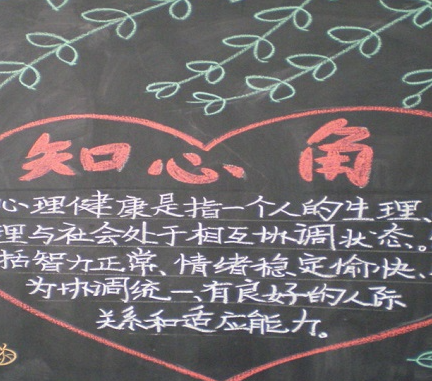 知心角
心理健康是指一个人的生理、
理与社会处于相互协调状态。
括智力正常、情绪稳定愉快、
为协调统一、有良好的人际
关系和适应能力。